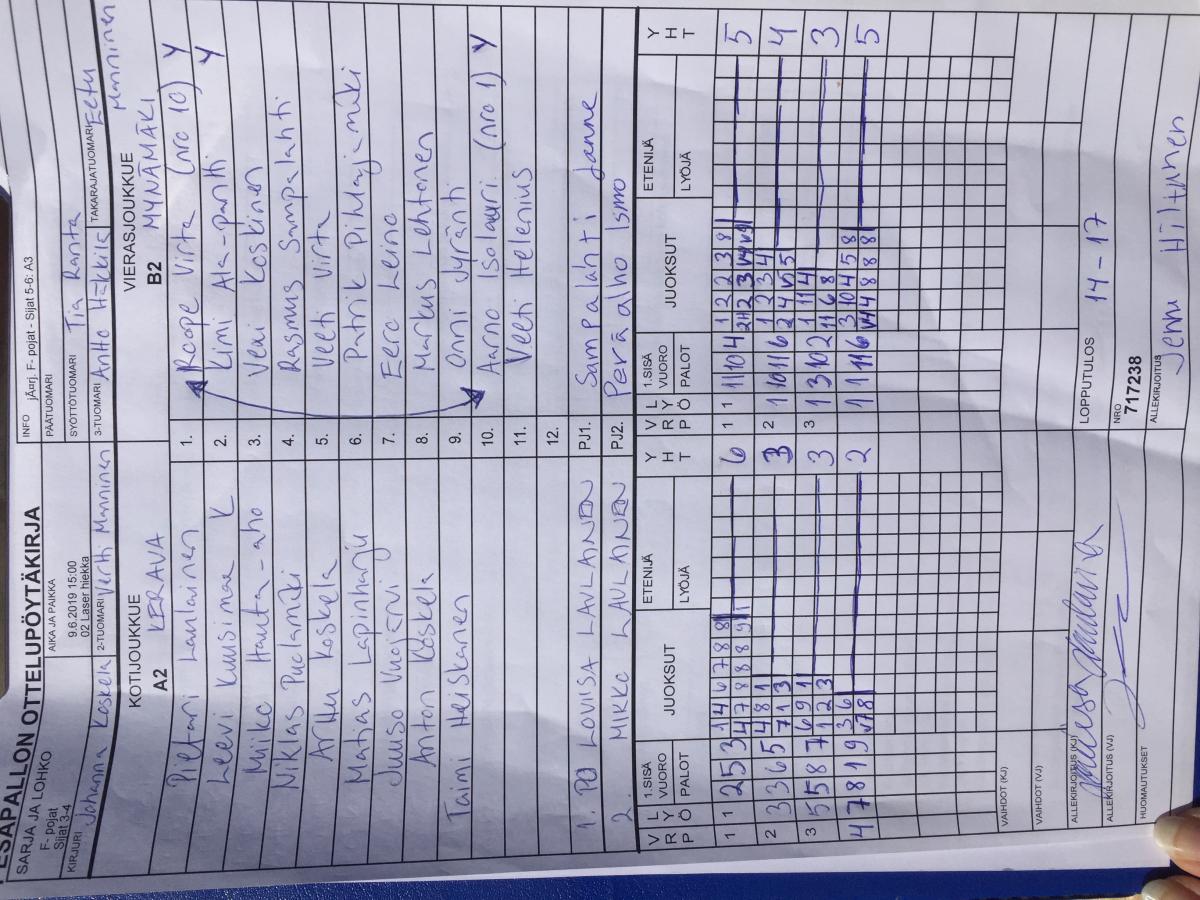 PESÄPALLON OTTELUPÖYTÄKIRJA
INFO jÄ¤rj. F- pojat - Sijat 5-6: A3
SARJA JA LOHKO
F- pojat
Sijat 3-4
AIKA JA PAIKKA
9.6.2019 15:00
02 Laser hiekka
PÄÄTUOMARI
SYÖTTÖTUOMARI Tia Ranta
KIRJURI Johanna Koskela
2-TUOMARI Vertti Manninen
3-TUOMARI Antto Heikkilä
TAKARAJATUOMARI Eetu Manninen
KOTIJOUKKUE
A2 KERAVA
VIERASJOUKKUE
B2 MYNÄMÄKI
Pietari Laulainen 1. Roope Virta (nro 10) Y
Leevi Kuusimäe K 2. Kimi Ala-pantti Y
Miiko Hauta-aho 3. Veai Koskinen
Niklas Puolamäki 4. Rasmus Sampalahti
Arttu Koskela 5. Veeti Virta
Matias Lapinharju 6. Patrik Pihlajamäki
Juuso Vuojärvi 7. Eero Leino
Anton Koskela 8. Markus Lehtonen
Taimi Heiskanen 9. Onni Jyränti
10. Aarno Isolauri (nro 1) Y
11. Veeti Helenius
12.
1. PJ LOVIISA LAVLAINEN PJ1. Sampalahti Janne
2. MIKKO LAVLAINEN PJ2. Peräalho Ismo
V R P L Y Ö 1.SISÄ VUORO PALOT JUOKSUT ETENIJÄ LYÖJÄ Y H T V R P L Y Ö 1.SISÄ VUORO PALOT JUOKSUT ETENIJÄ LYÖJÄ Y H T
1 1 2 5 3 1 4 6 7 8 8 6 1 1 11 10 4 1 2 2 3 8 5
4 7 8 8 9 1
2 3 3 6 5 4 8 1 3 2 1 10 11 6 1 2 3 4 4
7 1 3 2 4 V 5
3 5 5 8 7 6 9 1 3 3 1 3 10 2 1 11 4 3
1 2 3 11 6 8
4 7 8 1 9 3 6 2 1 1 11 6 3 10 4 5 8 5
V4 4 8 8 8
VAIHDOT (KJ)
VAIHDOT (VJ)
LOPPUTULOS 14 - 17
ALLEKIRJOITUS (KJ)
ALLEKIRJOITUS (VJ)
NRO
717238
HUOMAUTUKSET
ALLEKIRJOITUS
Jenni Hiltunen